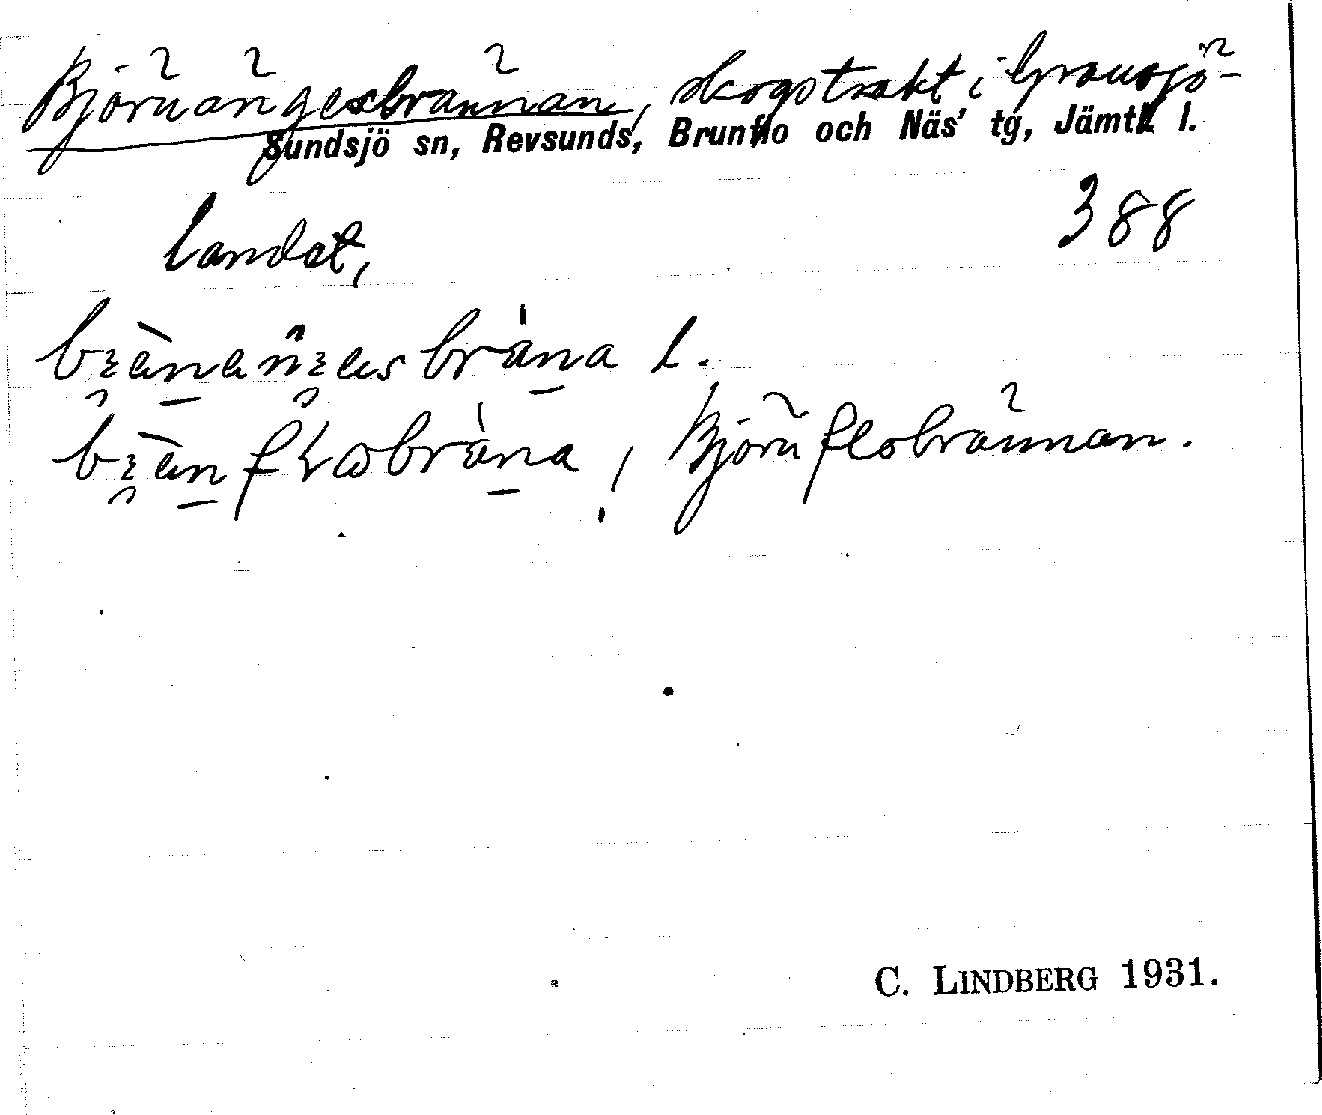 Björnängesbrännan, skogstrakt i Gransjö-
Sundsjö sn, Revsunds, Brunflo och Näs' tg, Jämtl l.
landet, 388
l.
Björnflobrännan.
C. LINDBERG 1931.